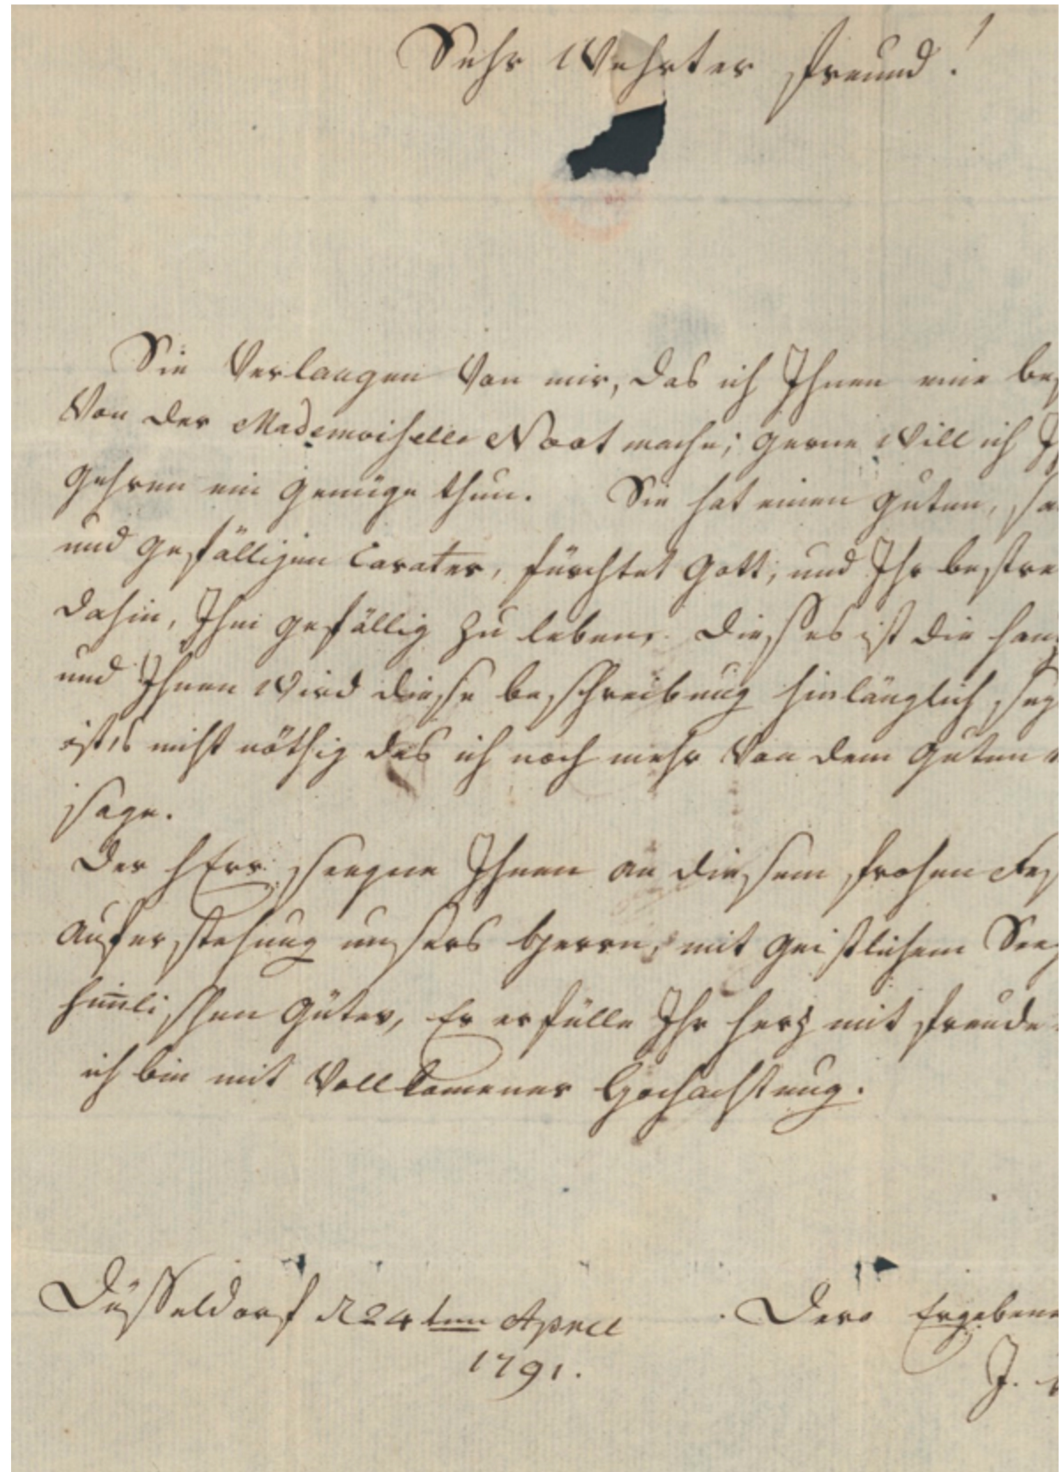 Sehr Wehrter Freund!
Sie Verlangen Von mir, das ich Ihnen eine bes
Von der Mademoiselle Noot mache; gerne Will ich I
gehren ein genüge thun. Sie hat einen guten, sa
und gefälligen Carater, fürchtet Gott, und Ihr bestre
dahin, Ihm gefällig zu leben. Dieses ist die hau
und Ihnen Wird diese beschreibung hinlänglich sey
ist's nicht nöthig das ich noch mehr Von dem guten
sage.
Der HErr seegne Ihnen an diesem frohen Fes
Auferstehung unsers Herrn, mit geistlichem See
himlischen Güter, Er erfülle Ihr herz mit freude
ich bin mit Vollkomener Hochachtung.
Düsseldorf d 24ten Aprill
1791.
Dero Ergebene
J.